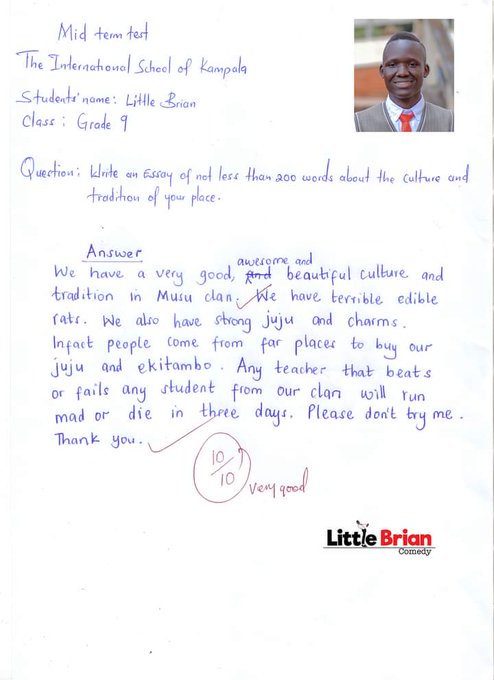 Mid term test
The International School of Kampala
Students' name: Little Brian
Class: Grade 9
Question: Write an Essay of not less than 200 words about the culture and
tradition of your place.
Answer
We have a very good, and awesome and beautiful culture and
tradition in Musu clan. We have terrible edible
rats. We also have strong juju and charms.
Infact people come from far places to buy our
juju and ekitambo. Any teacher that beats
or fails any student from our clan will run
mad or die in three days. Please don't try me.
Thank you.
10/10
Very good
Little Brian
Comedy